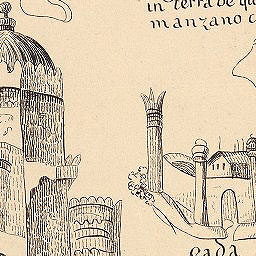 in terra de qu
manzano c
cada